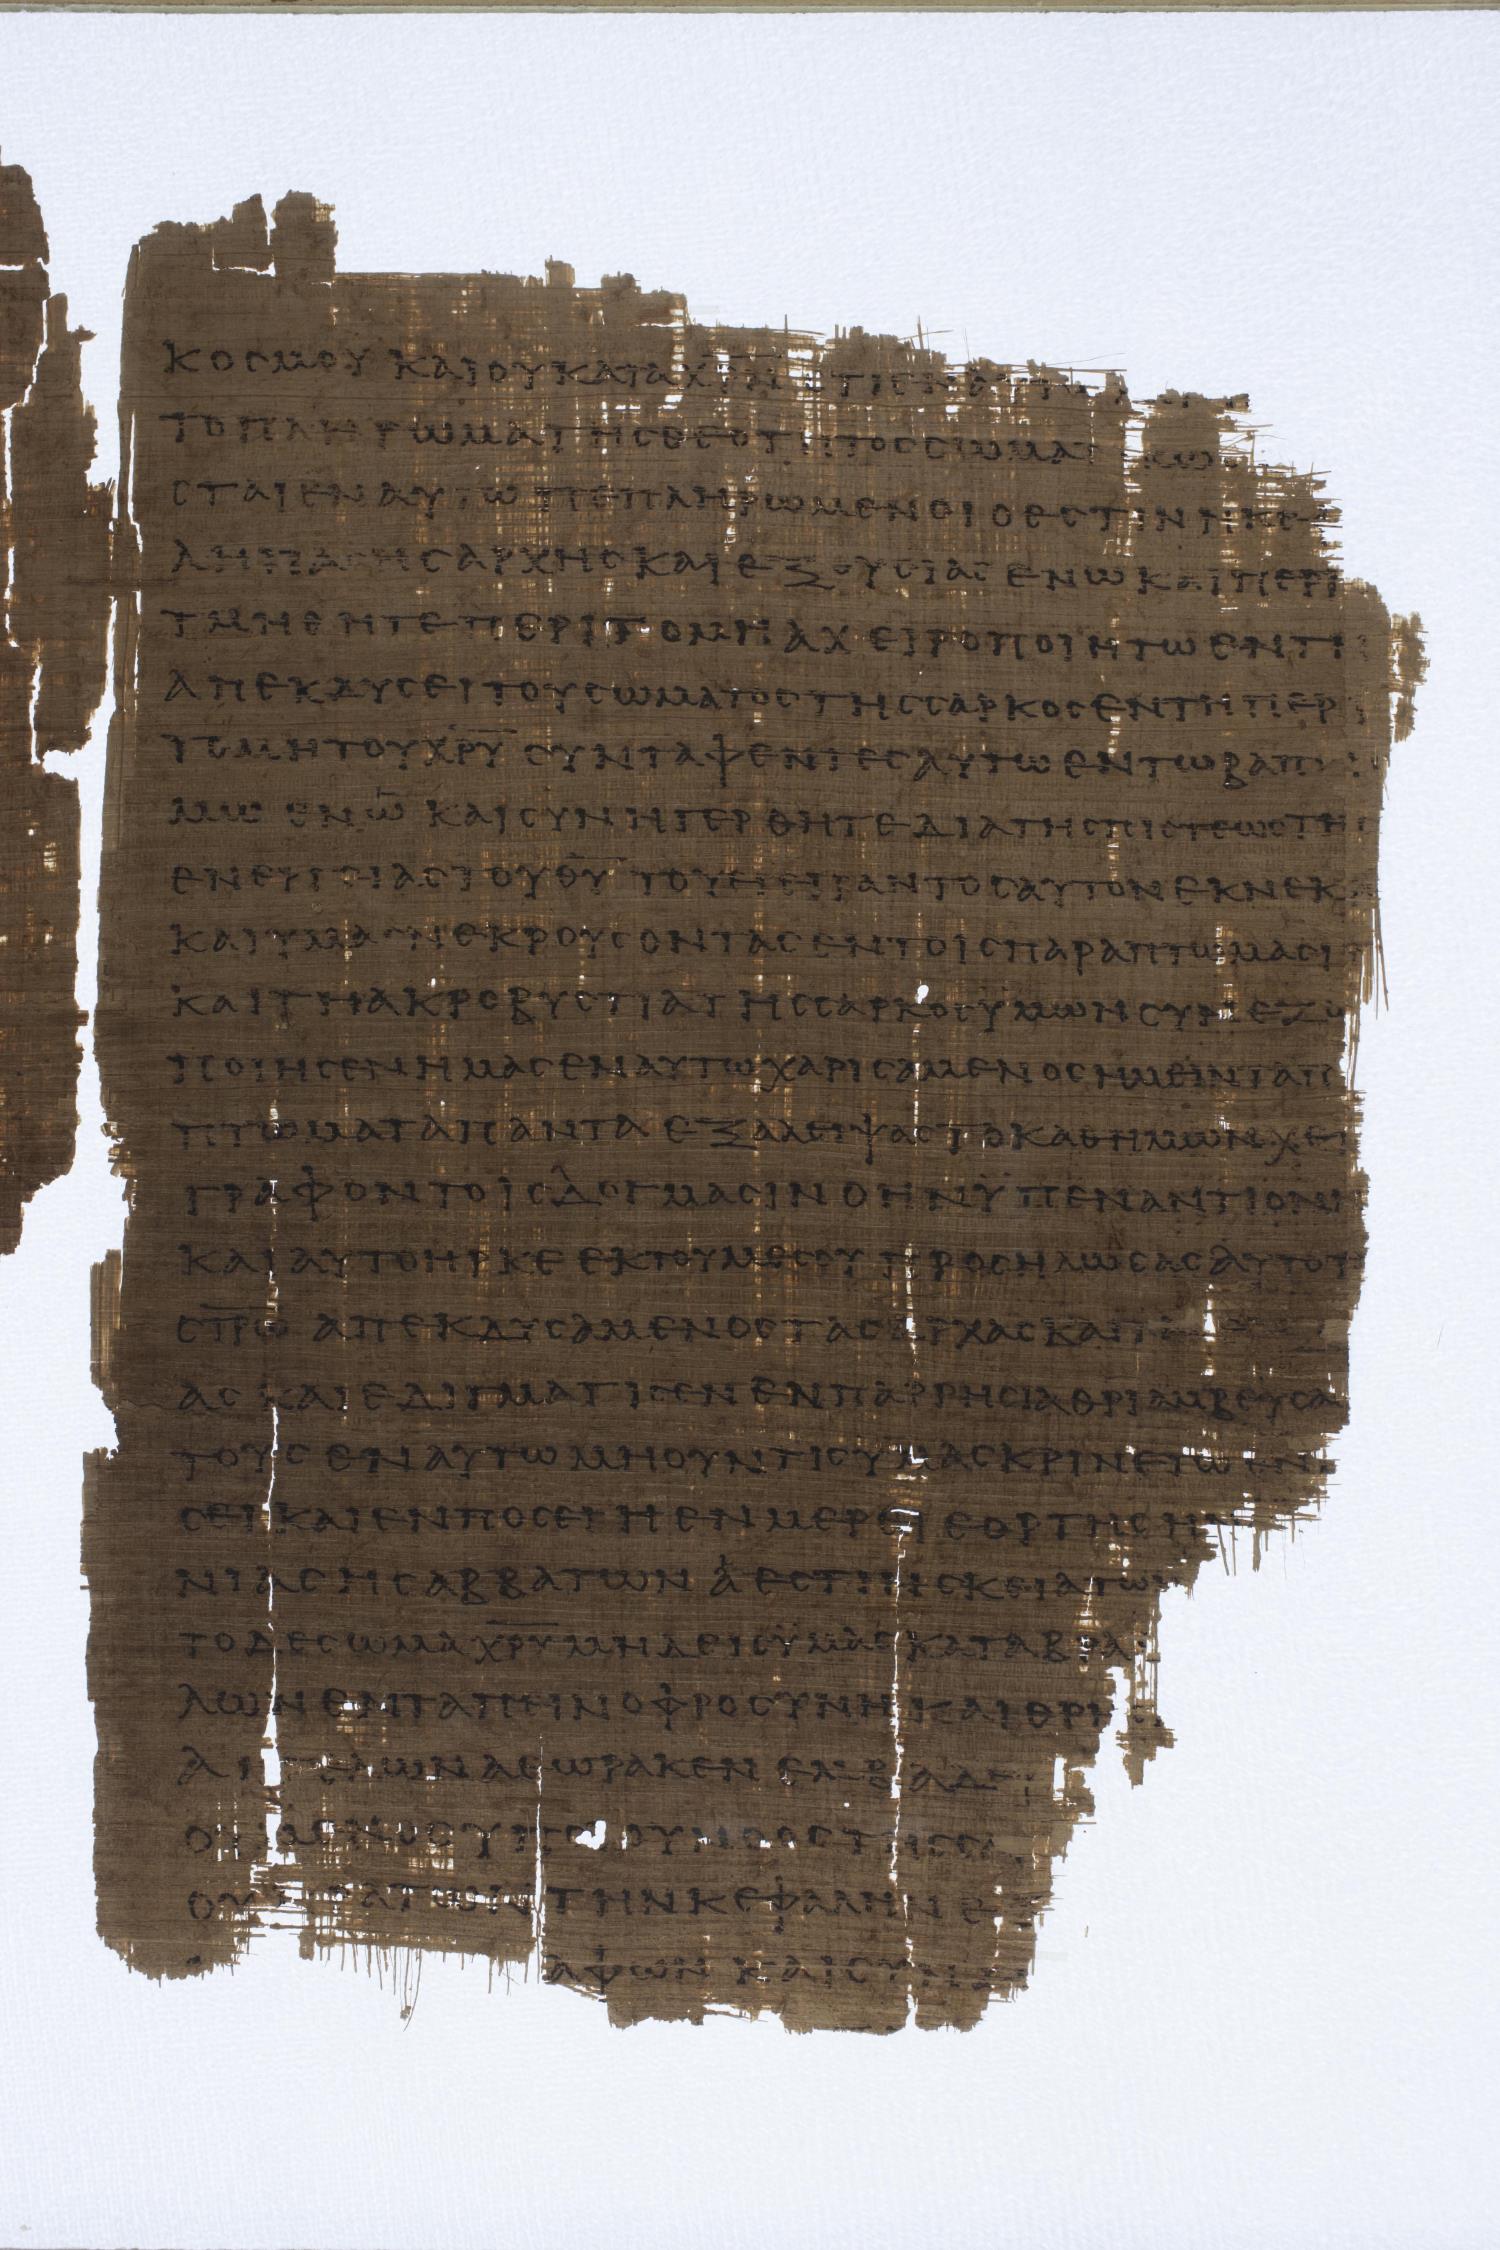 κοσμου και ου κατα χρν οτι εν αυτω
το πληρωμα της θεοτητος σωματικως
σται εν αυτω πεπληρωμενοι ο εστιν η κε
λη πασης αρχης και εξουσιας εν ω και περι
τμηθητε περιτομη αχειροποιητω εν τη
απεκδυσει του σωματος της σαρκος εν τη περι
τομη του χρυ συνταφεντες αυτω εν τω βαπτι
μω εν ω και συνηγερθητε δια της πιστεως της
ενεργειας του θυ του εγειραντος αυτον εκ νεκ
και υμας νεκρους οντας εν τοις παραπτωμασι
και τη ακροβυστια της σαρκος υμων συνεζω
ποιησεν ημας εν αυτω χαρισαμενος ημειν τα πα
πτωματα παντα εξαλειψας το καθ ημων χει
γραφον τοις δογμασιν ο ην ϋπεναντιον η
και αυτο ηρκε εκ του μεσου προσηλωσας αυτο τ
στρω απεκδυσαμενος τας αρχας και τ
ας και εδιγματισεν εν παρρησια θριαμβευσα
τους εν αυτω μη ουν τις υμας κρινετω εν
σει και εν ποσει η εν μερει εορτης η ν
νιας η σαββατων α εστιν σκεια των
το δε σωμα χρυ μηδεις ϋμας καταβρα
λων εν ταπεινοφροσυνη και θρη
αγγελων α εωρακεν εμβατε
ου υπο του νοος της σα
ου κρατων την κεφαλην εξ
αφων και συνδ